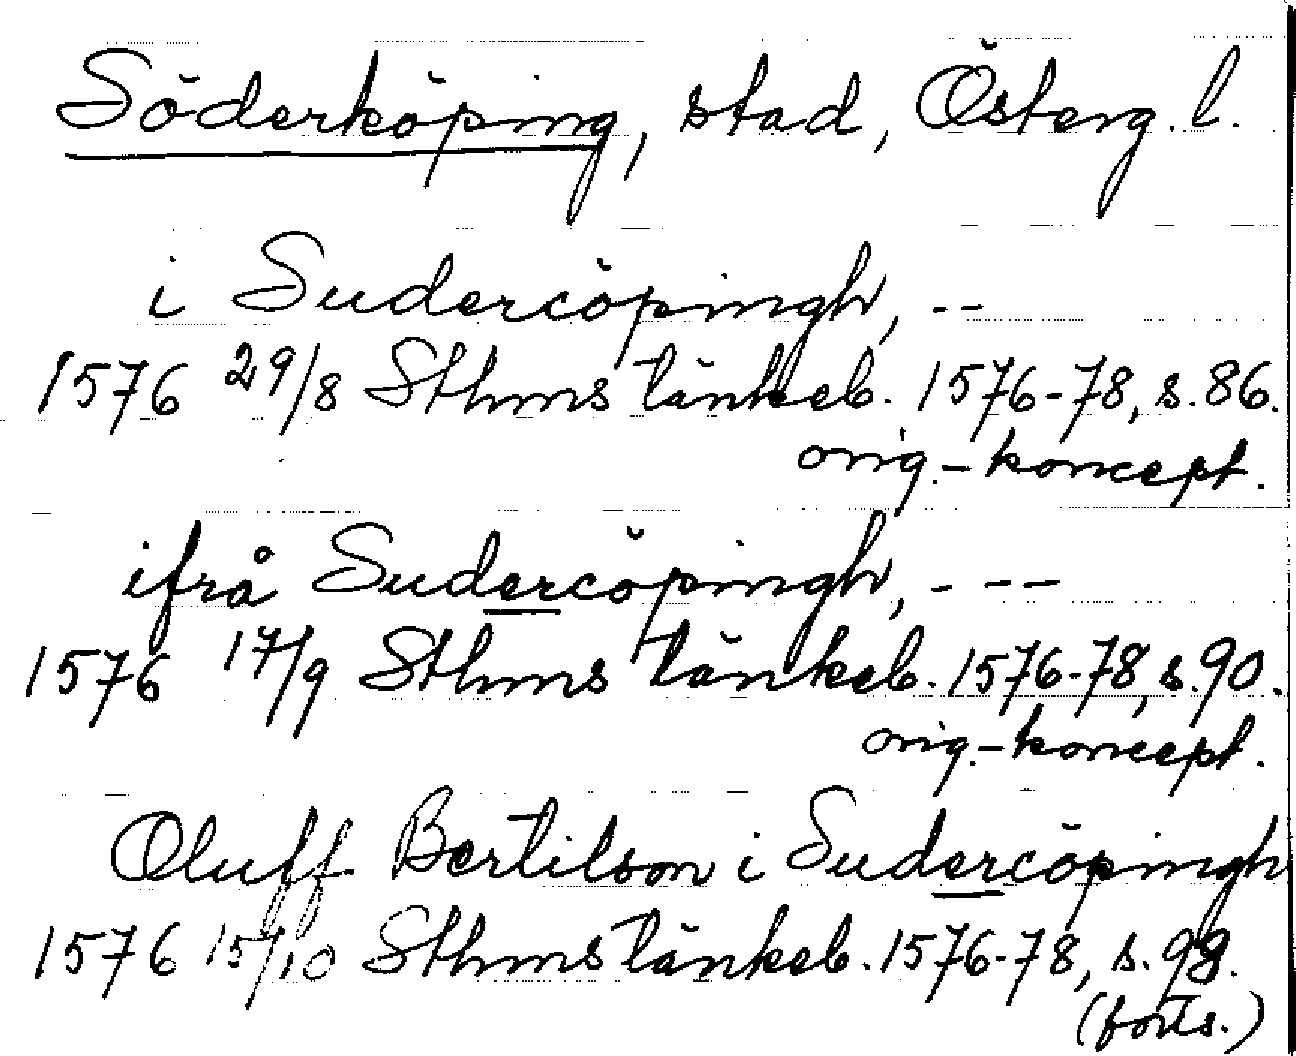 Söderköping, stad, Österg. l.
i Sudercöpingh, --
1576 29/8 Sthms tänkeb. 1576-78, s. 86.
orig.-koncept.
ifrå Sudercöpingh, ---
1576 17/9 Sthms tänkeb. 1576-78, s. 90.
orig.-koncept.
Oluff Bertilson i Sudercöpingh
1576 15/10 Sthms tänkeb. 1576-78, s.
(forts.)